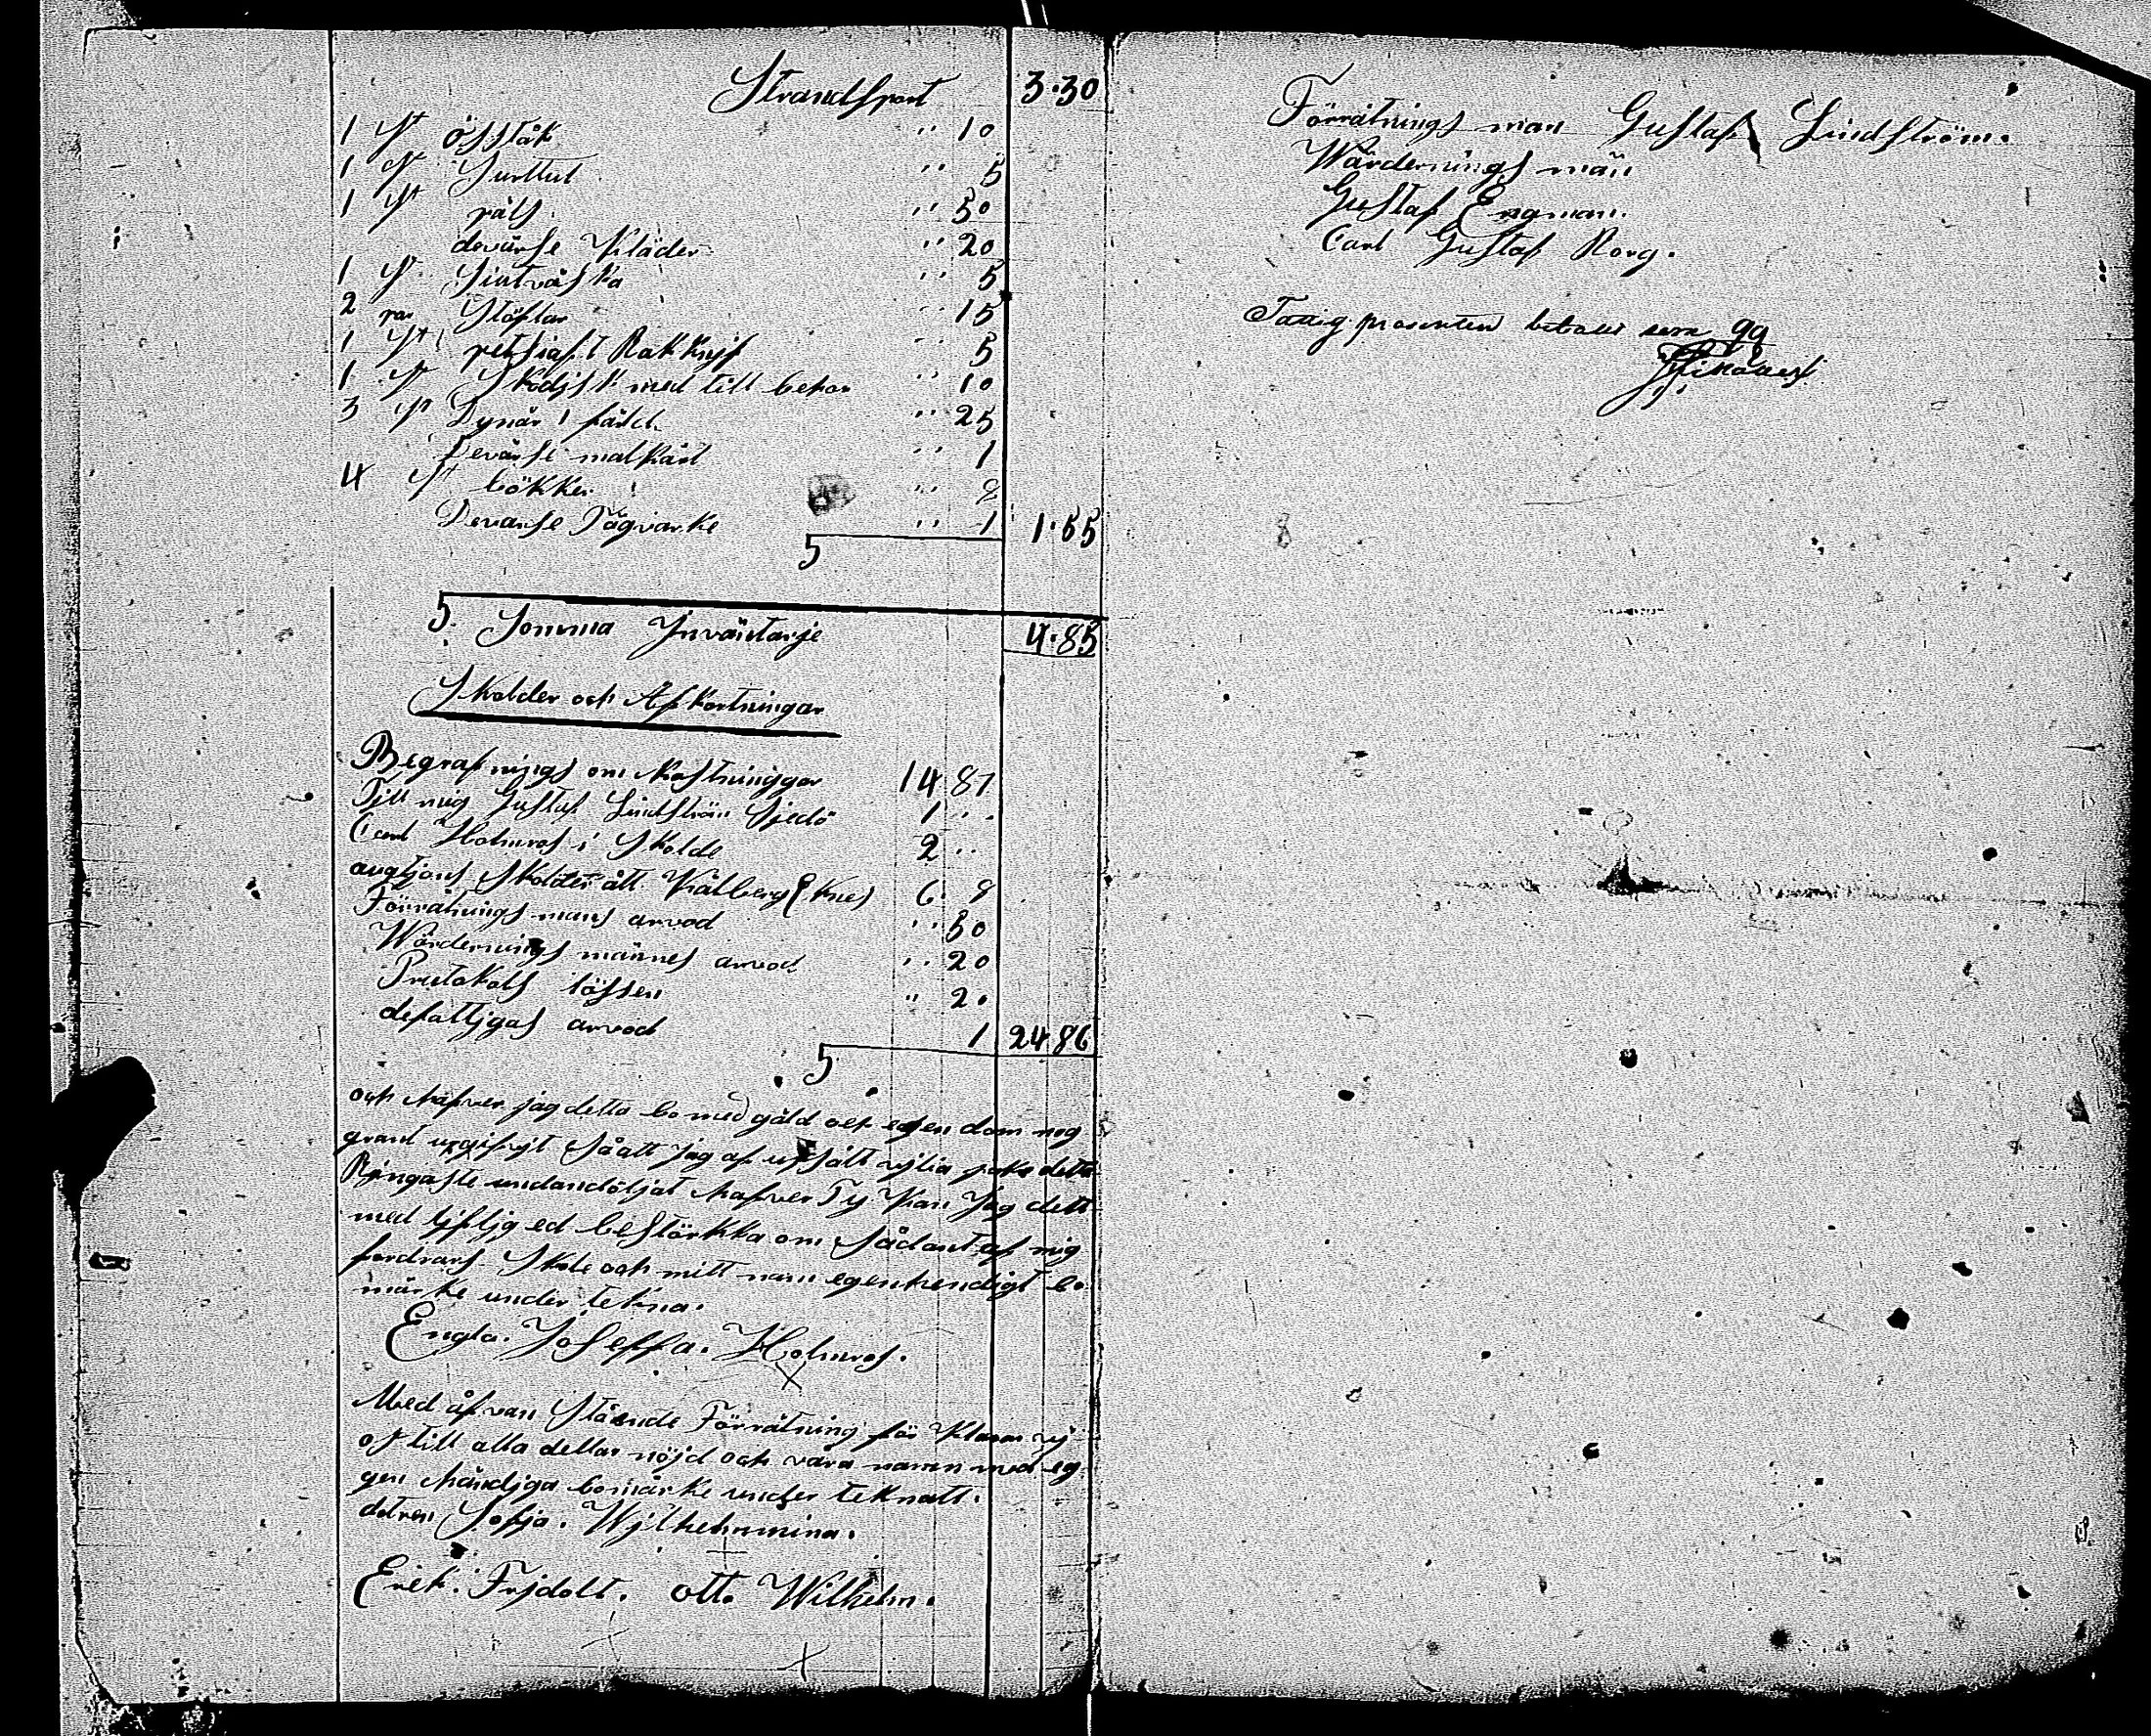 Strandsport 3.30
1 st ösståk " 10
1 st Surttut " 5
1 st päls " 50
devärse Kläder " 20
1 st " 5
2 par Stöflar " 15
1 st Rakknijf " 5
1 st med till behör " 10
3 st Dynär i " 25
Devärse " 1
4 st bökker " 8
Devärse Tågvarke " 1 1.55
S
S. Somma Inväntarje 4.85
Skolder och Afkortningar
Begrafnings om kostninggar 14 87
Till mig Gustaf Lindström 1 ..
Carl Holmros i Skolde 2 ..
Skolder ått 6. 8
Förrätnings mans arvod " 50
Wärdernings männes arvod " 20
Prutokols lössen " 20
defattjgas arvod 1 24 86
S
och hafver jag detta bo med gäld och egen dom nog
grant så att jag af upsått detta
Ringaste undandöljat hafver Ty Kan Jag dett
med ljflig ed bestörkka om sådant af mig
fordrars Skole och mitt nam egenhendigt bo
märke under tekna.
Engla. Joseffa. Holmros.
X
Med åfvan Stående Förrätning för Klaras vj
os till alla dellar nöjd och våra namn med eg
gen händjga bomärke under teknatt.
dotren Sofja. Wjlhelmmina.
Erek. Frjdolt. ott. Wilhelm.
Förrätnings man Gustaf Lindström.
Wärdernings män
Gustaf Engman.
Carl Gustaf Rorg.
Fattig procenten betalas